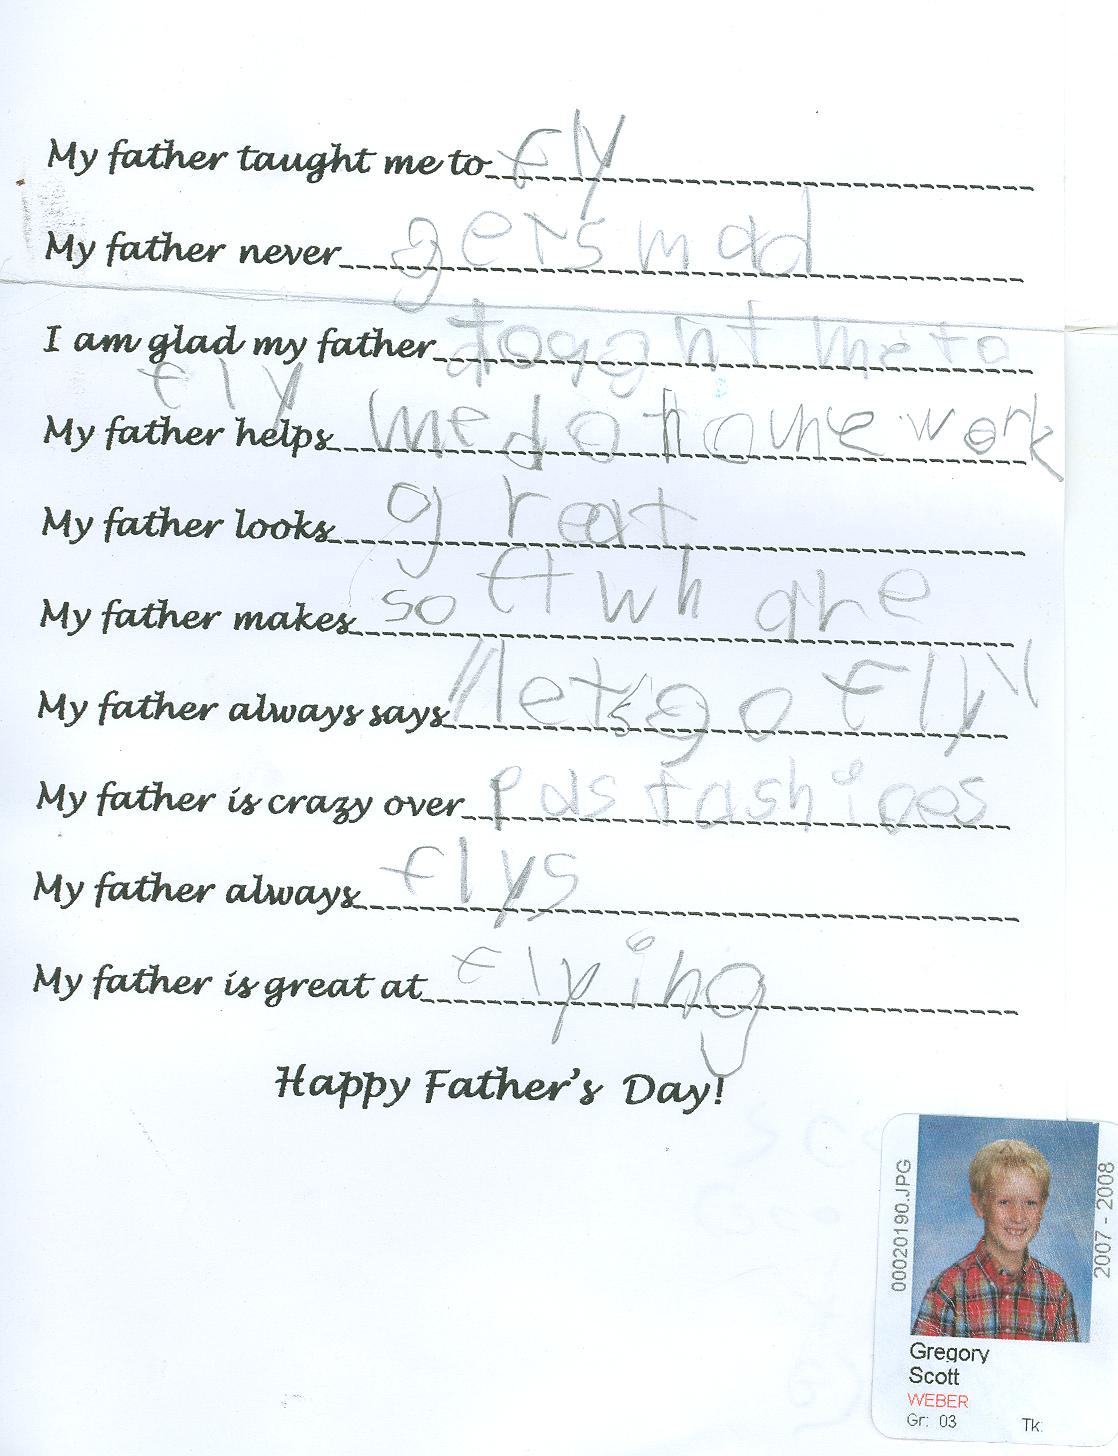 My father taught me to fly
My father never gets mad
I am glad my father tought me to
fly
My father helps me do home work
My father looks great
My father makes softwhare
My father always says "lets go fly"
My father is crazy over pas fashioes
My father always flys
My father is great at flying
Happy Father's Day!
00020190.JPG
2007 - 2008
Gregory
Scott
WEBER
Gr: 03 Tk: